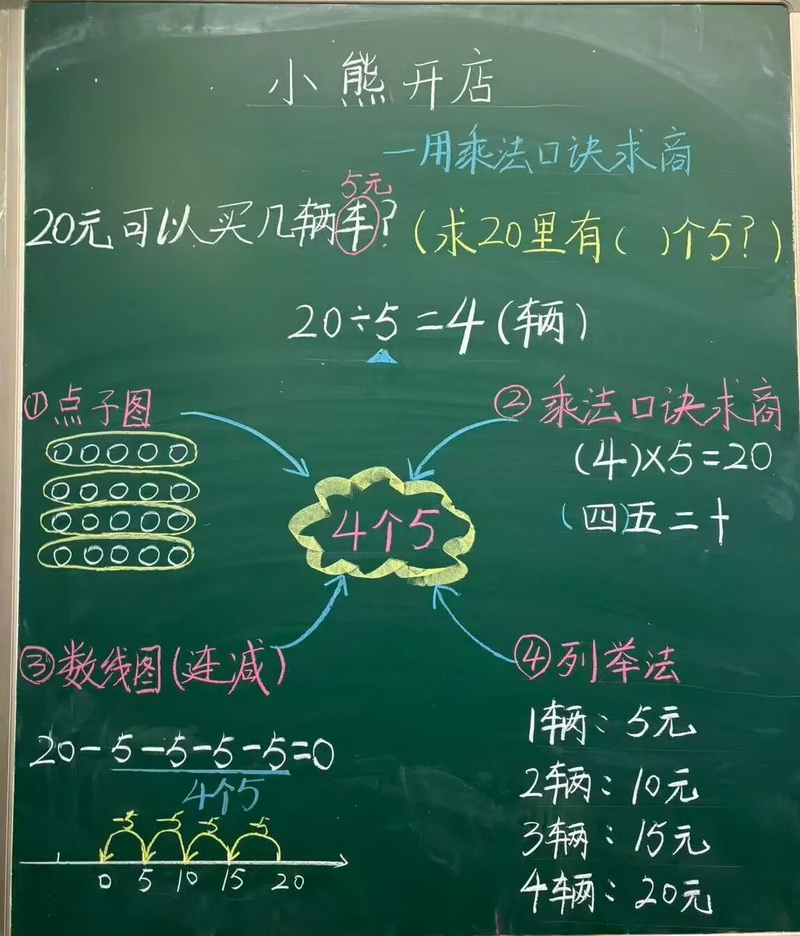 小熊开店
—用乘法口诀求商
5元
20元可以买几辆车?(求20里有( )个5?)
20÷5=4(辆)
①点子图
②乘法口诀求商
(4)×5=20
(四)五二十
4个5
③数线图(连减)
20-5-5-5-5=0
4个5
-5 -5 -5 -5
0 5 10 15 20
④列举法
1辆:5元
2辆:10元
3辆:15元
4辆:20元